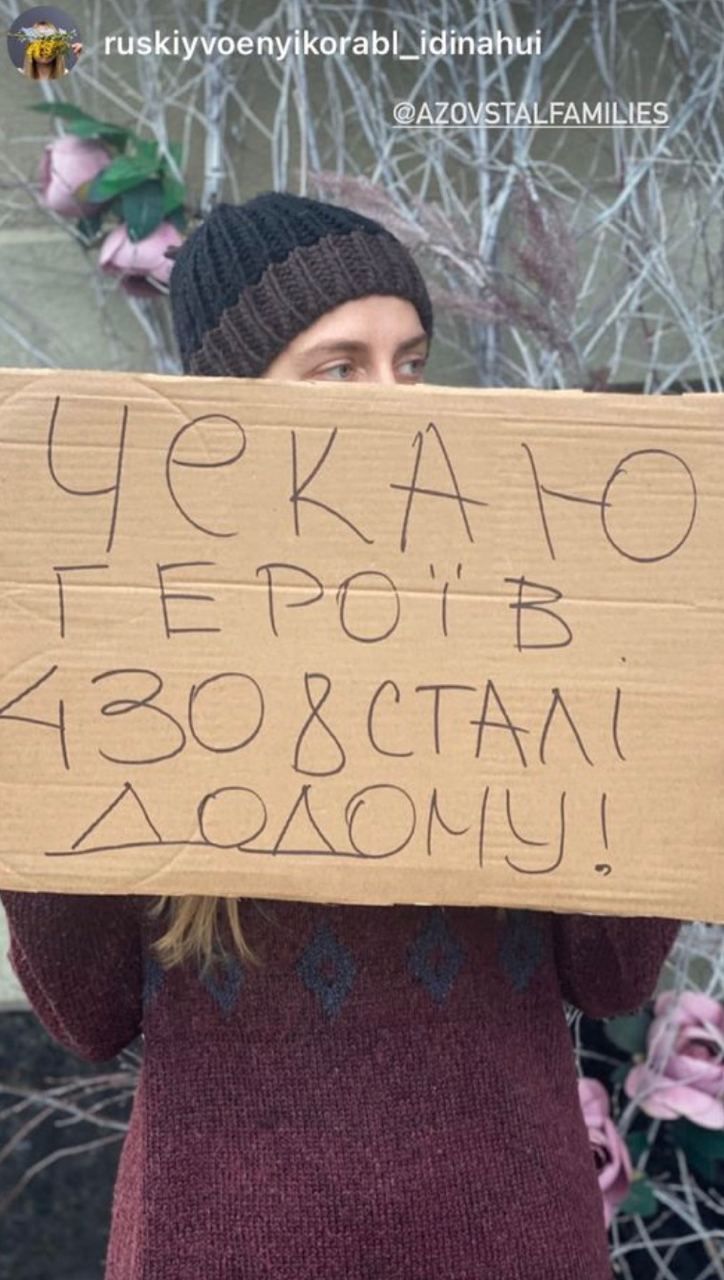 ruskiyvoenyikorabl_idinahui
@AZOVSTALFAMILIES
ЧЕКАЮ
ГЕРОЇВ
АЗОВСТАЛІ
ДОДОМУ!